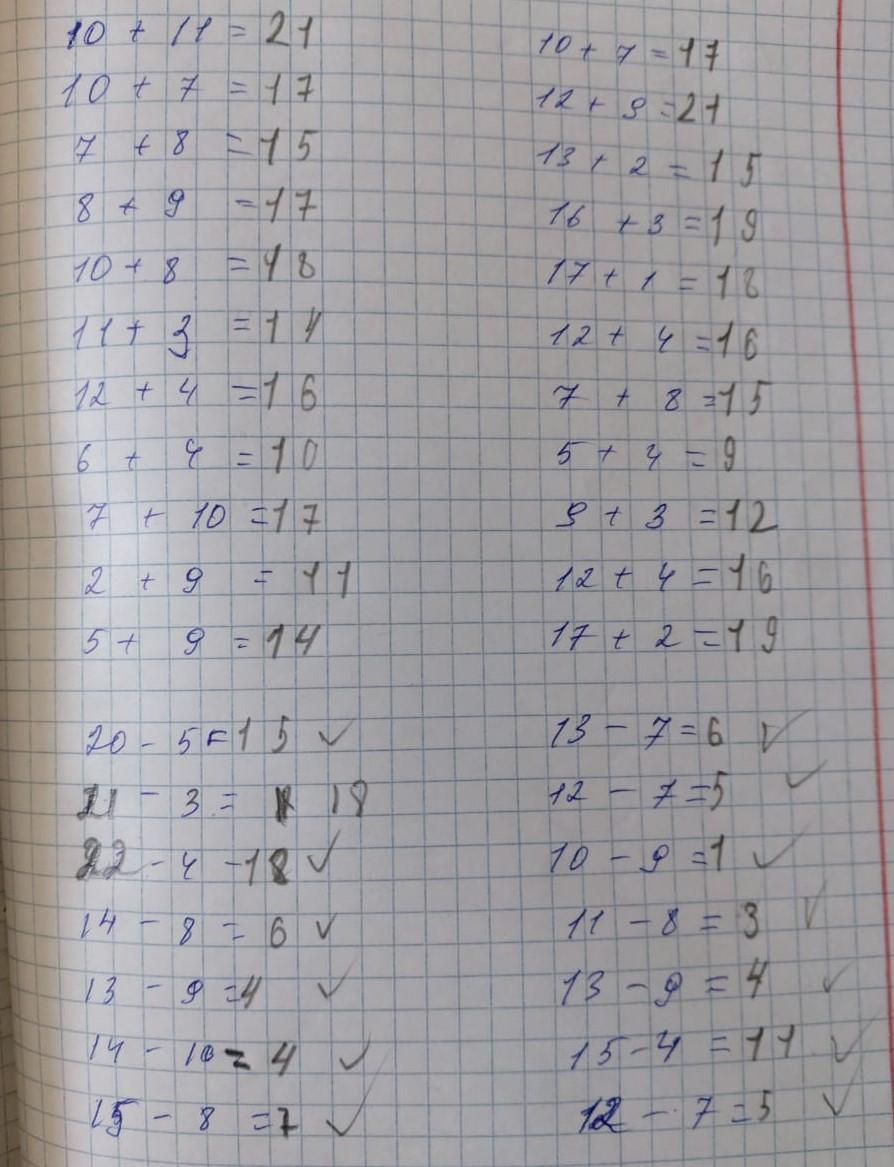 10 + 11 = 21
10 + 7 = 17
7 + 8 = 15
8 + 9 = 17
10 + 8 = 18
11 + 3 = 14
12 + 4 = 16
6 + 4 = 10
7 + 10 = 17
2 + 9 = 11
5 + 9 = 14
20 - 5 = 15 ✓
21 - 3 = 18
22 - 4 - 18 ✓
14 - 8 = 6 ✓
13 - 9 = 4 ✓
14 - 10 = 4 ✓
15 - 8 = 7 ✓
10 + 7 = 17
12 + 9 = 21
13 + 2 = 15
16 + 3 = 19
17 + 1 = 18
12 + 4 = 16
7 + 8 = 15
5 + 4 = 9
9 + 3 = 12
12 + 4 = 16
17 + 2 = 19
13 - 7 = 6 ✓
12 - 7 = 5 ✓
10 - 9 = 1 ✓
11 - 8 = 3 ✓
13 - 9 = 4 ✓
15 - 4 = 11 ✓
12 - 7 = 5 ✓